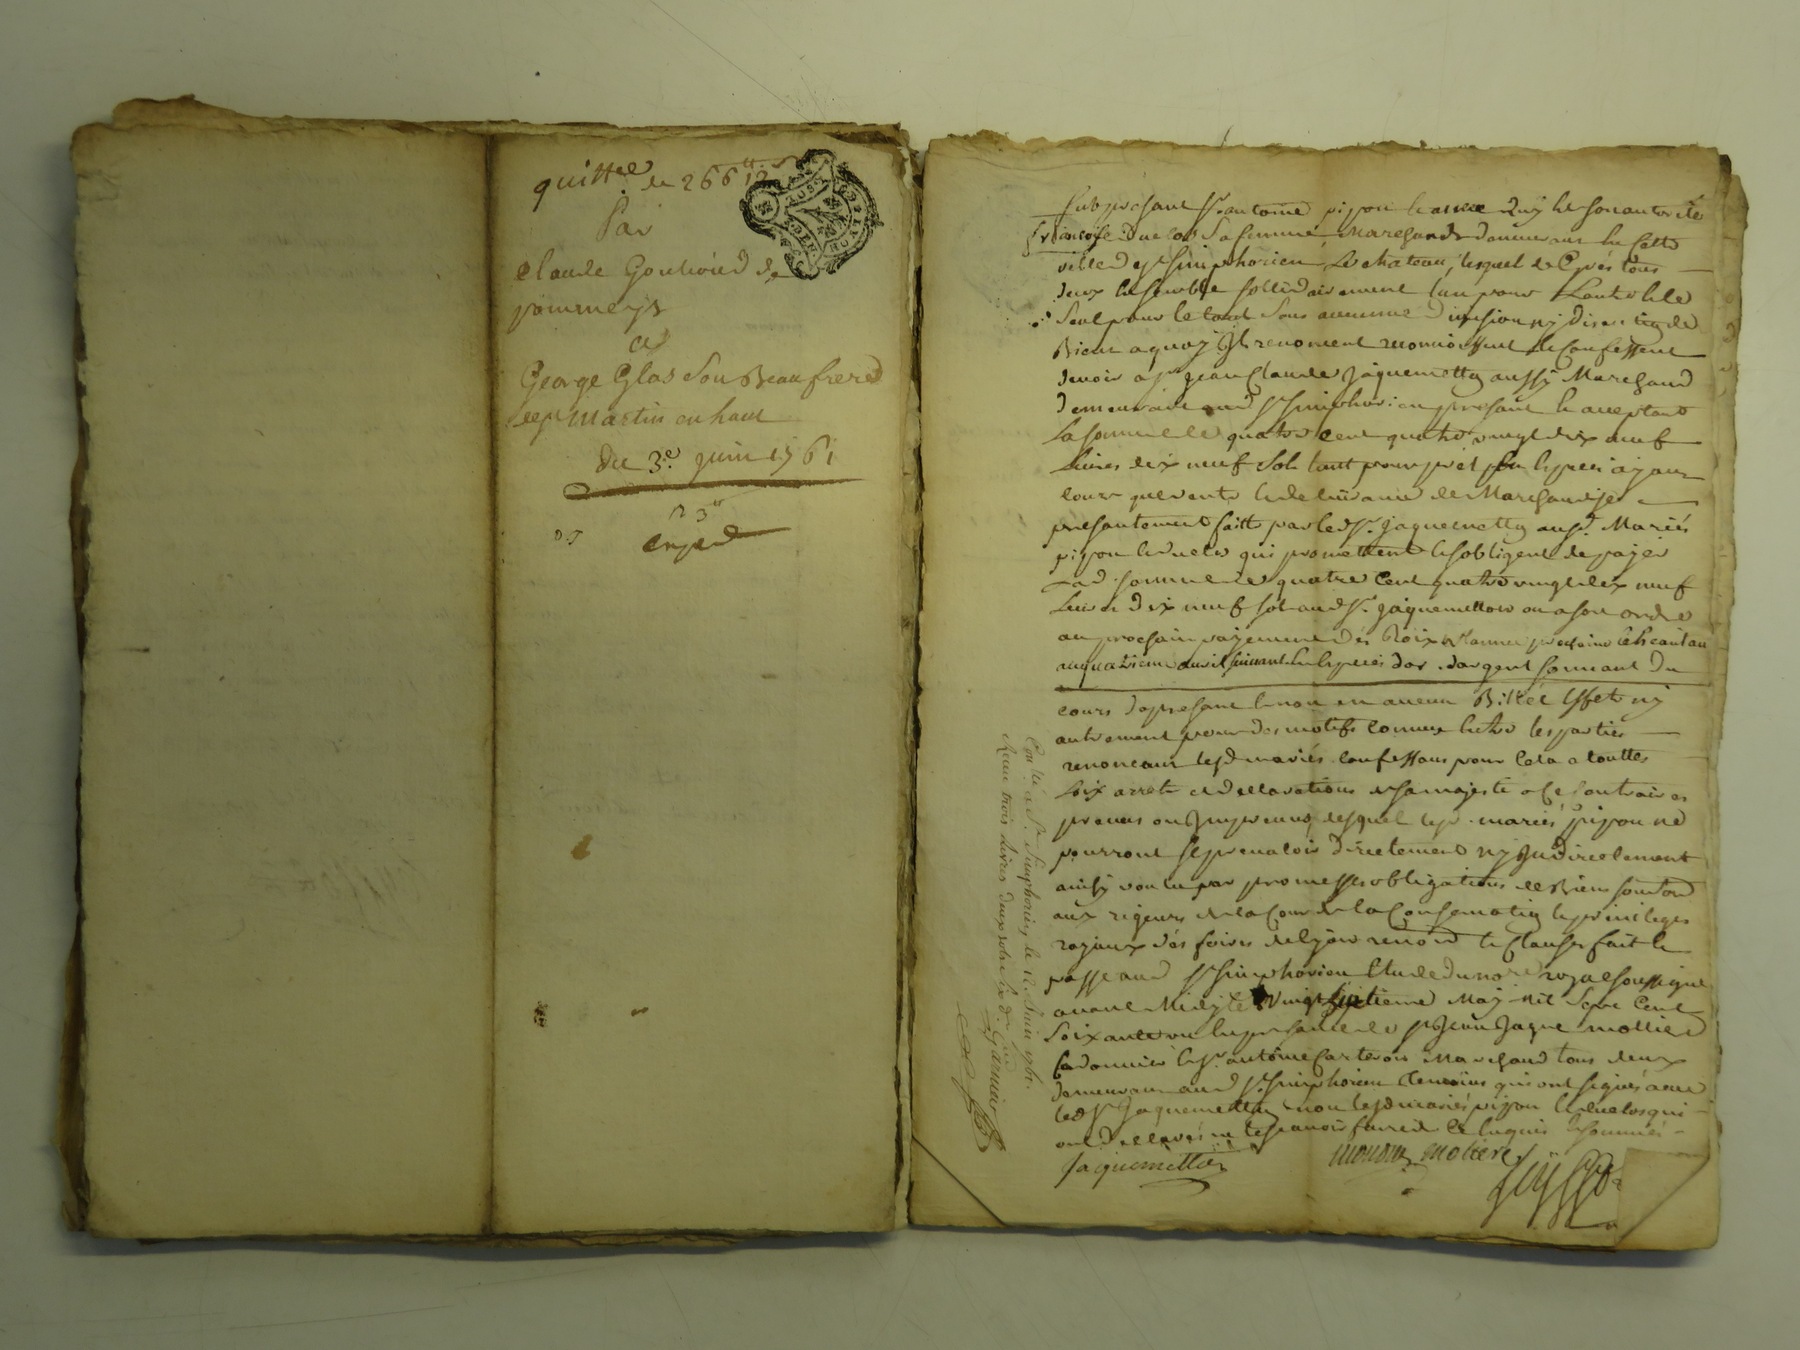 quitt.ce de 266 ₶ 12 s
Par
claude Goutioird de
pommeys
a
George Glas son Beau frere
de st Martin en haut
du 3.e juin 1761
n 3
exped
fut present sr. antoine pijon et avec luy et son autorité
francoise Duclos sa femme, Marchands demeurant en cette
ville de st simphorien Le chateau, lesquel de Gré tous
deux ensemble sollidairement lun pour Lautre et le
seul pour le tout sans aucune division ny discution de
Biens a quoy Ils renoncent reconnoissent et Confessent
devoir a sr. jean Claude jaquemetton aussy Marchand
demeurant aud. st simphorien present et acceptant
La somme de quatre cent quatre vingt dix neuf
Livres dix neuf sols tant pour pret en especes ayant
cours que vente et delivrance de Marchandise
presentement faitte par led. sr. jaquemetton ausd. Mariés
pijon et duclos qui promettent et sobligent de payer
Lad. somme de quatre Cent quatre vingt dix neuf
Livres dix neuf sols aud. sr. jaquemetton ou a son ordre
au prochain payement des Roix de lannee prochaine echeant au
au quatrieme avril suivant en especes dor dargent sonnant du
cours dapresent et non en aucun Billet Effets ny
autrement pour des motifs connus entre les parties
renoncant lesd. mariés confessans pour cela a touttes
Loix arrets et declarations de sa majesté a ce contraires
preveus ou Impreveus desquel lesd. mariés pijon ne
pourront se prevaloir directement ny Indirectement
ainsy voulu par promesses obligations de Biens
aux rigeurs de la Cour de la Conservation et privileges
royaux des foires de lyon renond. et Clauses fait et
passé aud. st simphorien Etude du no.re royal soussigné
avant Midy le vingt maj mil sept Cent
soixante un en presence de sr. jean jaque mollierd
Cadonnier et sr. antoine Carteron Marchand tous deux
demeurant aud. st. simphorien temoins qui ont signés avec
led. sr jaquemetton non lesd. mariés pijon et duclos qui
ont declarés ne le scavoir faire de ce enquis et sommés
jaquemetton moliere
Con.lé a St. Simphorien le 12. Juin 1761.
Receu trois livres deux sols six d. Garnier